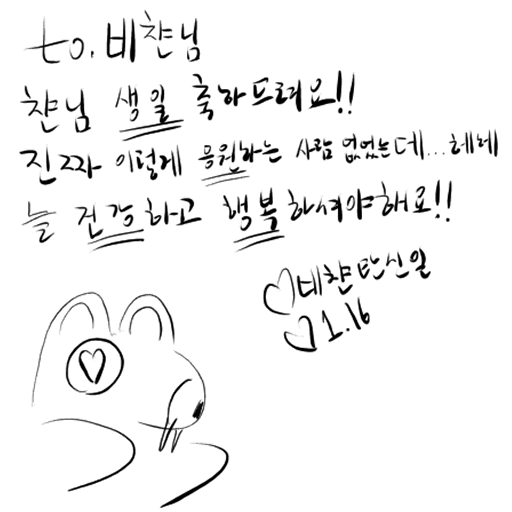 to. 비챤님
챤님 생일 축하드려요!!
진짜 이렇게 응원하는 사람 없었는데...헤헤
늘 건강하고 행복하셔야해요!!
♡비챤탄신일
♡1.16